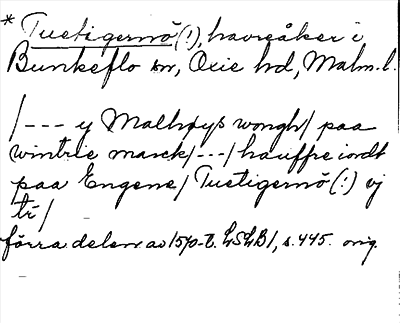 * Tuetigernö(!), havreåker i
Bunkeflo sn, Oxie hd, Malm. l.
/--- y Malhøys wongh/ paa
wintrie marck/---/ hauffre iordt
paa Engene/ Tuetigernö (!) vj
tr/
förra delen av 1570-t. LSLB1, s. 445. orig.